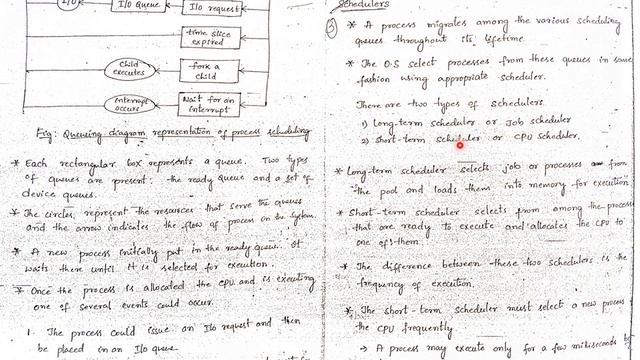 I/O
I/O Queue
I/O request
time slice
expired
Child
executes
fork a
child
interrupt
occurs
Wait for an
interrupt
Fig: Queueing diagram representation of process scheduling
* Each rectangular box represents a queue. Two types
of queues are present: the ready Queue and a set of
device queues.
* The circles, represent the resources that serve the queues
and the arrow indicates the flow of process in the system.
* A new process initially put in the ready queue. It
waits there until it is selected for execution.
* Once the process is allocated the CPU and is executing
one of several events could occur.
1. The process could issue an I/o request and then
be placed in an I/o queue.
Schedulers
3
* A process migrates among the various scheduling
queues throughout its lifetime.
* The O.S select processes from these queues in some
fashion using appropriate scheduler.
There are two types of schedulers.
1) Long-term scheduler or Job scheduler
2) Short-term scheduler or CPU scheduler.
* Long-term scheduler selects job or processes from
the pool and loads them into memory for execution
* Short-term scheduler selects from among the process
that are ready to execute and allocates the CPU to
one of them.
* The difference between these two schedulers is the
frequency of execution.
* The short-term scheduler must select a new process
the CPU frequently.
→ A process may execute only for a few milliseconds